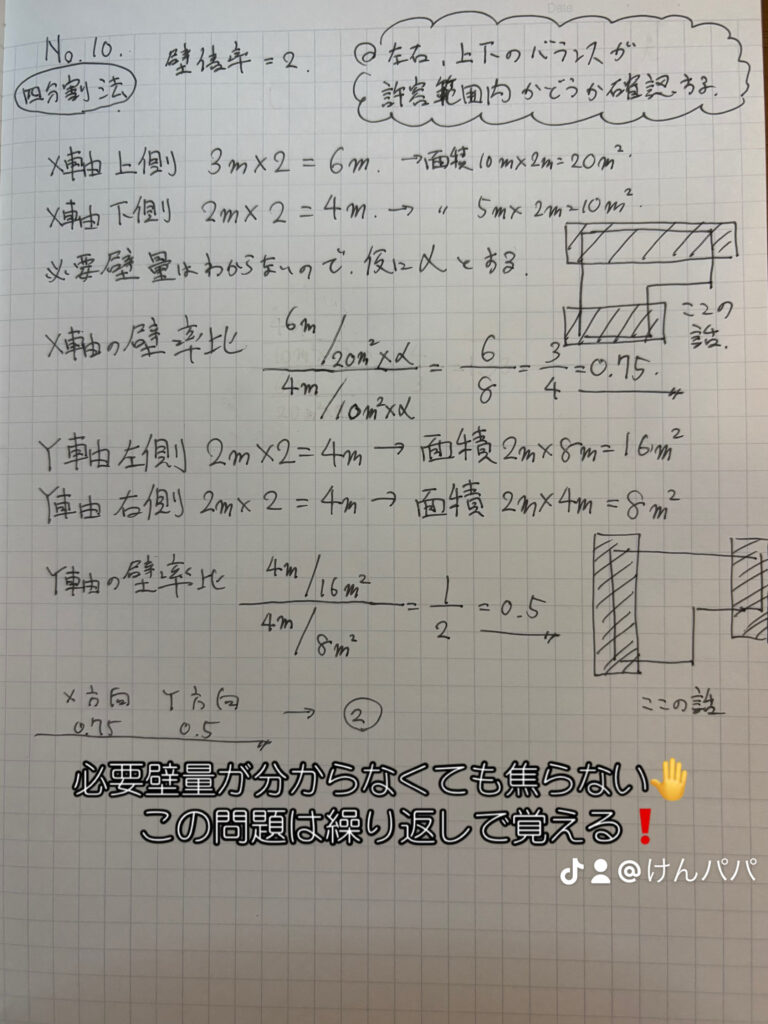 Date
No.10.
四分割法
壁倍率=2.
◎左右、上下のバランスが
許容範囲内かどうか確認する.
X軸上側 3m×2=6m. →面積 10m×2m=20m².
X軸下側 2m×2=4m. → 〃 5m×2m=10m².
必要壁量はわからないので、仮にαとする.
X軸の壁率比 6m/20m²×α / 4m/10m²×α = 6/8 = 3/4 = 0.75.
ここの
話.
Y軸左側 2m×2=4m → 面積2m×8m=16m²
Y軸右側 2m×2=4m → 面積 2m×4m=8m²
Y軸の壁率比 4m/16m² / 4m/8m² = 1/2 = 0.5
ここの話
X方向 Y方向
0.75 0.5 → ②
必要壁量が分からなくても焦らない🤚
この問題は繰り返しで覚える❗
@けんパパ